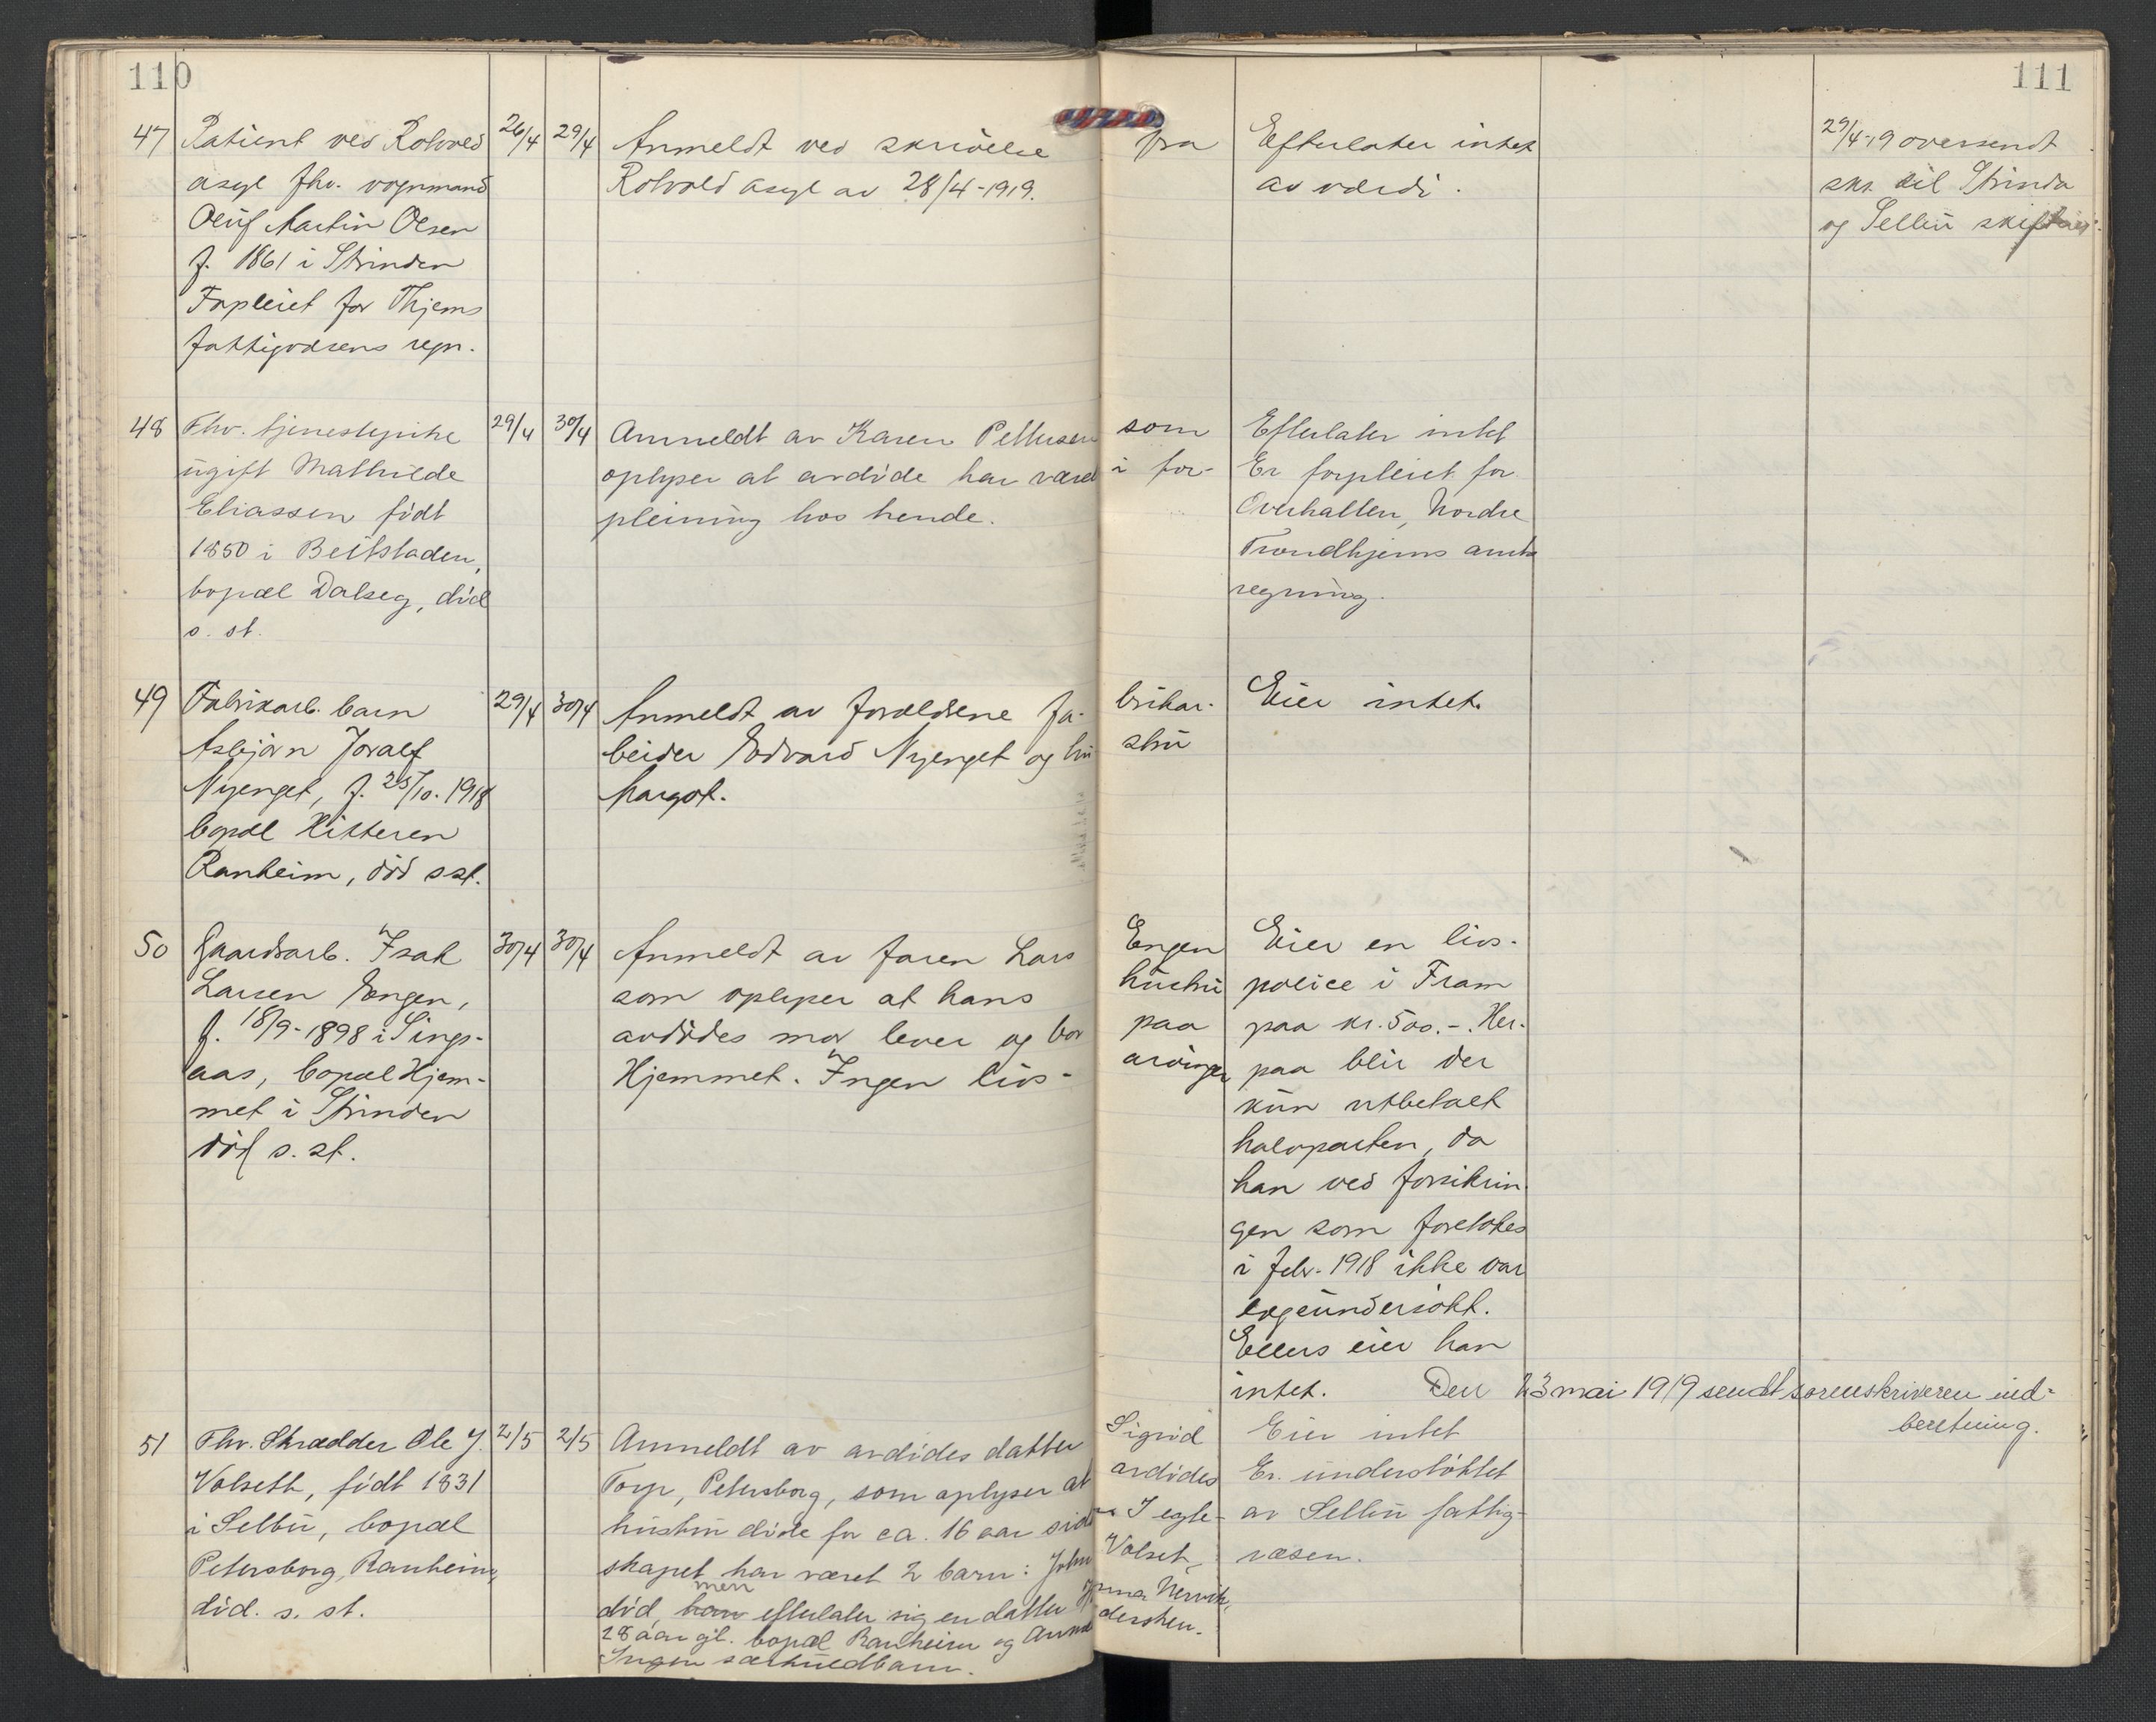 110
111
47 Patient ved Rotvold 26/4 29/4 Anmeldt ved skrivelse fra Efterlater intet 29/4-19 oversendt
asyl fhv. vognmand Rotvold asyl av 28/4-1919. av værdi. skr. til Strinda
Oluf Martin Olsen og Selbu skifteret.
f. 1861 i Strinden
Forpleiet for Thjems
fattigvæsens regn.
48 Fhv. tjenestepike 29/4 30/4 Anmeldt av Karen Pettersen som Efterlater intet
ugift Mathilde oplyser at avdöde har været i for- Er forpleiet for
Eliassen född pleining hos hende. Overhallen, Nordre
1850 i Beitstaden, Trondhjems amts
bopæl Dalseg, död regning.
s. st.
49 Fabrikarb. barn 29/4 30/4 Anmeldt av forældrene fa- brikar- Eier intet.
Asbjörn Joralf beider Edvard Nyenget og hu stru
Nyenget, f. 25/10. 1918 Margot.
bopæl Hitteren
Ranheim, död sst.
50 Gaardsarb. Isak 30/4 30/4 Anmeldt av faren Lars Engen Eier en livs-
Larsen Engen, som oplyser at hans hustru police i Fram
f. 18/9-1898 i Sings- avdödes mor lever og bor paa paa kr. 500.-. Her-
aas, bopæl Hjem- Hjemmet. Ingen livs- arvinger paa blir der
met i Strinden kun utbetalt
död s. st. halvparten, da
han ved forsikrin-
gen som foretokes
i febr. 1918 ikke var
lægeundersökt.
Ellers eier han
intet. Den 23 mai 1919 sendt sorenskriveren ind-
beretning.
51 Fhv. Skrædder Ole J. 2/5 2/5 Anmeldt av avdödes datter Sigrid Eier intet
Volseth, född 1831 Torp, Petersborg, som oplyser at avdödes Er understöttet
i Selbu, bopæl hustru döde for ca. 16 aar siden I egte- av Selbu fattig-
Petersborg, Ranheim, skapet har været 2 barn: John Volset, væsen.
död. s. st. död, han men efterlater sig en datter
28 aar gl. bopæl Ranheim og Anna
Ingen særkuldbarn.